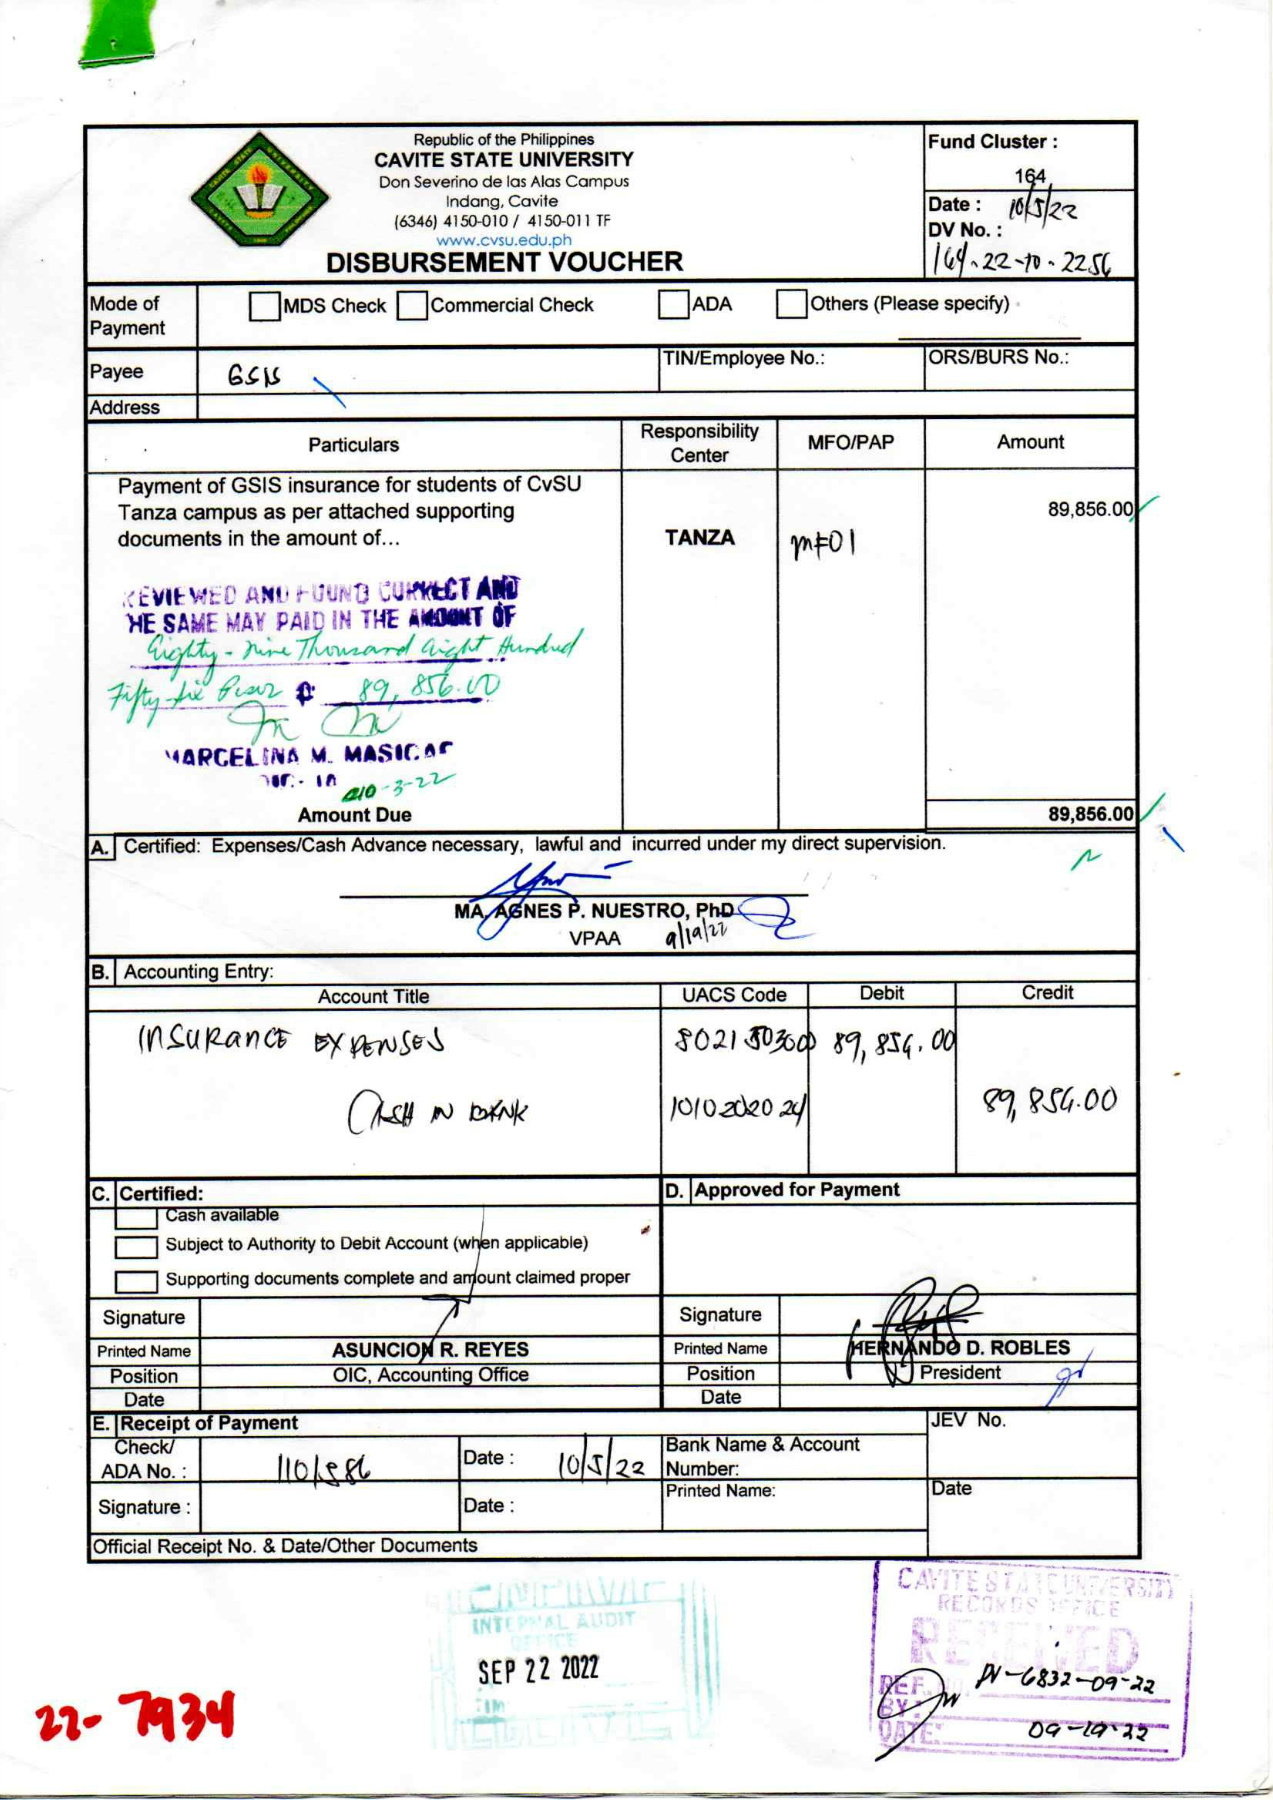 Republic of the Philippines
CAVITE STATE UNIVERSITY
Don Severino de las Alas Campus
Indang, Cavite
(6346) 4150-010 / 4150-011 TF
www.cvsu.edu.ph
DISBURSEMENT VOUCHER
Fund Cluster :
164
Date : 10/5/22
DV No. :
164-22-10-2256
Mode of Payment
MDS Check Commercial Check ADA Others (Please specify)
Payee GSIS TIN/Employee No.: ORS/BURS No.:
Address
Particulars Responsibility Center MFO/PAP Amount
Payment of GSIS insurance for students of CvSU
Tanza campus as per attached supporting
documents in the amount of...
TANZA MFO1 89,856.00
REVIEWED AND FOUND CORRECT AND
HE SAME MAY PAID IN THE AMOUNT OF
Eighty-nine Thousand Eight Hundred
Fifty-six Pesos ₱ 89,856.00
MARCELINA M. MASICAP
OIC-IA
10-3-22
Amount Due 89,856.00
A. Certified: Expenses/Cash Advance necessary, lawful and incurred under my direct supervision.
MA. AGNES P. NUESTRO, PhD
VPAA 9/19/22
B. Accounting Entry:
Account Title UACS Code Debit Credit
INSURANCE EXPENSES 89,856.00
CASH IN BANK 1010202024 89,856.00
C. Certified: D. Approved for Payment
Cash available
Subject to Authority to Debit Account (when applicable)
Supporting documents complete and amount claimed proper
Signature Signature
Printed Name ASUNCION R. REYES Printed Name HERNANDO D. ROBLES
Position OIC, Accounting Office Position President
Date Date
E. Receipt of Payment JEV No.
Check/ ADA No. : Date : 10/5/22 Bank Name & Account Number:
Signature : Date : Printed Name: Date
Official Receipt No. & Date/Other Documents
INTERNAL AUDIT
OFFICE
SEP 22 2022
CAVITE STATE UNIVERSITY
RECORDS OFFICE
RECEIVED
REF. NO. DV-6832-09-22
BY:
DATE: 09-19-22
22-7934